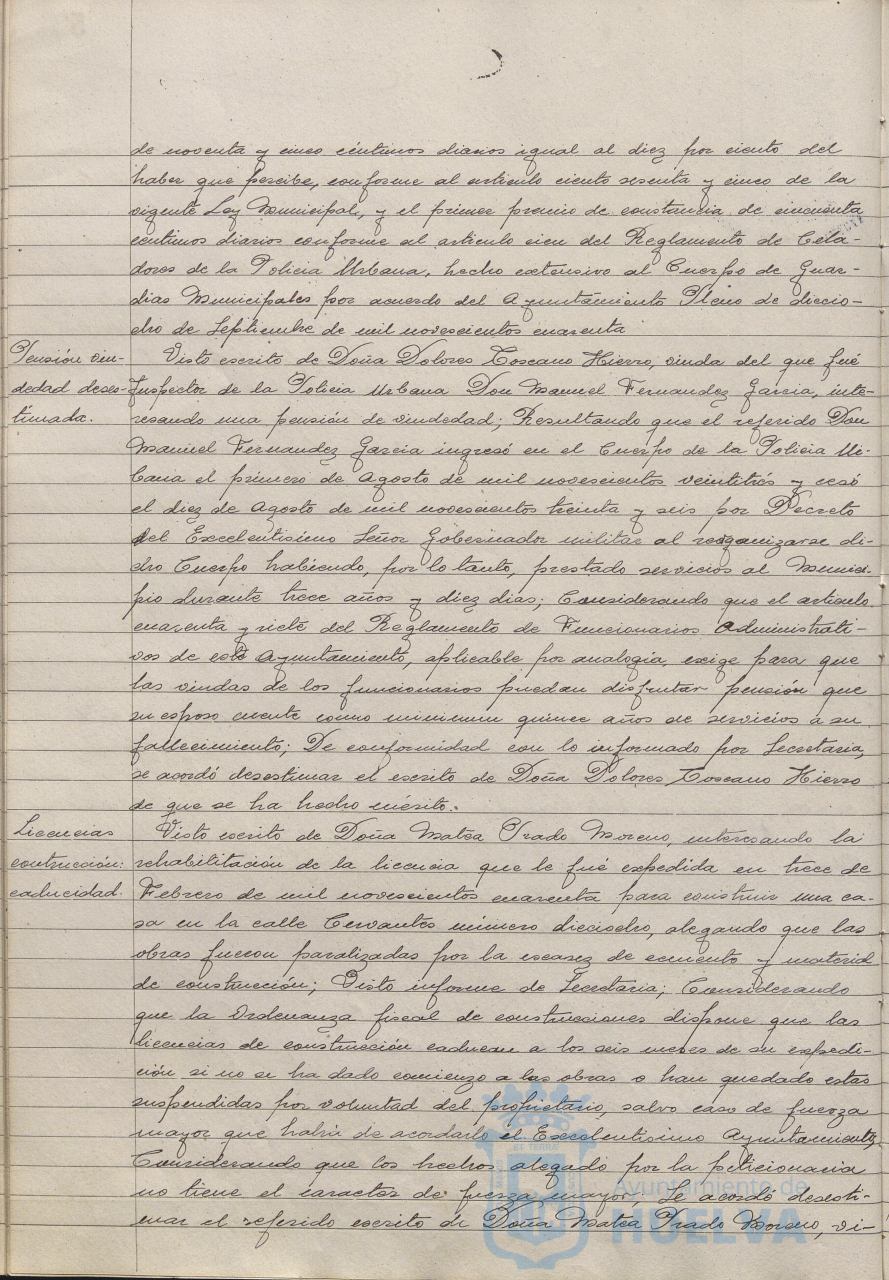 de noventa y cinco céntimos diarios igual al diez por ciento del
haber que percibe, conforme al articulo ciento sesenta y cinco de la
vigente Ley Municipal, y el primer premio de constancia de cincuenta
centimos diarios conforme al articulo cien del Reglamento de Cela-
dores de la Policia Urbana, hecho extensivo al Cuerpo de Guar-
dias Municipales por acuerdo del Ayuntamiento Pleno de diecio-
cho de Septiembre de mil novescientos cuarenta
Pensión viu-
dedad deses-
timada.
Visto escrito de Doña Dolores Toscano Hierro, viuda del que fué
Inspector de la Policia Urbana Don Manuel Fernandez Garcia, inte-
resando una pensión de viudedad; Resultando que el referido Don
Manuel Fernandez Garcia ingresó en el Cuerpo de la Policia Ur-
bana el primero de Agosto de mil novescientos veintitrés y cesó
el diez de Agosto de mil novescientos treinta y seis por Decreto
del Excelentisimo Señor Gobernador militar al reorganizarse di-
cho Cuerpo habiendo, por lo tanto, prestado servicios al Munici-
pio durante trece años y diez dias; Considerando que el articulo
cuarenta y siete del Reglamento de Funcionarios Administrati-
vos de este Ayuntamiento, aplicable por analogia, exige para que
las viudas de los funcionarios puedan disfrutar pensión que
su esposo cuente como minimum quince años de servicios a su
fallecimiento; De conformidad con lo informado por Secretaria,
se acordó desestimar el escrito de Doña Dolores Toscano Hierro
de que se ha hecho mérito.
Licencias
contrucción:
caducidad.
Visto escrito de Doña Matea Prado Moreno, interesando la
rehabilitación de la licencia que le fué expedida en trece de
Febrero de mil novescientos cuarenta para construir una ca-
sa en la calle Cervantes número dieciocho, alegando que las
obras fueron paralizadas por la escasez de cemento y material
de construcción; Visto informe de Secretaria; Considerando
que la Ordenanza fiscal de construcciones dispone que las
licencias de construcción caducan a los seis meses de su expedi-
ción si no se ha dado comienzo a las obras o han quedado estas
suspendidas por voluntad del propietario, salvo caso de fuerza
mayor que habrá de acordarlo el Excelentisimo Ayuntamiento;
Considerando que los hechos alegado por la peticionaria
no tiene el caracter de fuerza mayor; Se acordó desesti-
mar el referido escrito de Doña Matea Prado Moreno, vi-
Ayuntamiento de
HUELVA